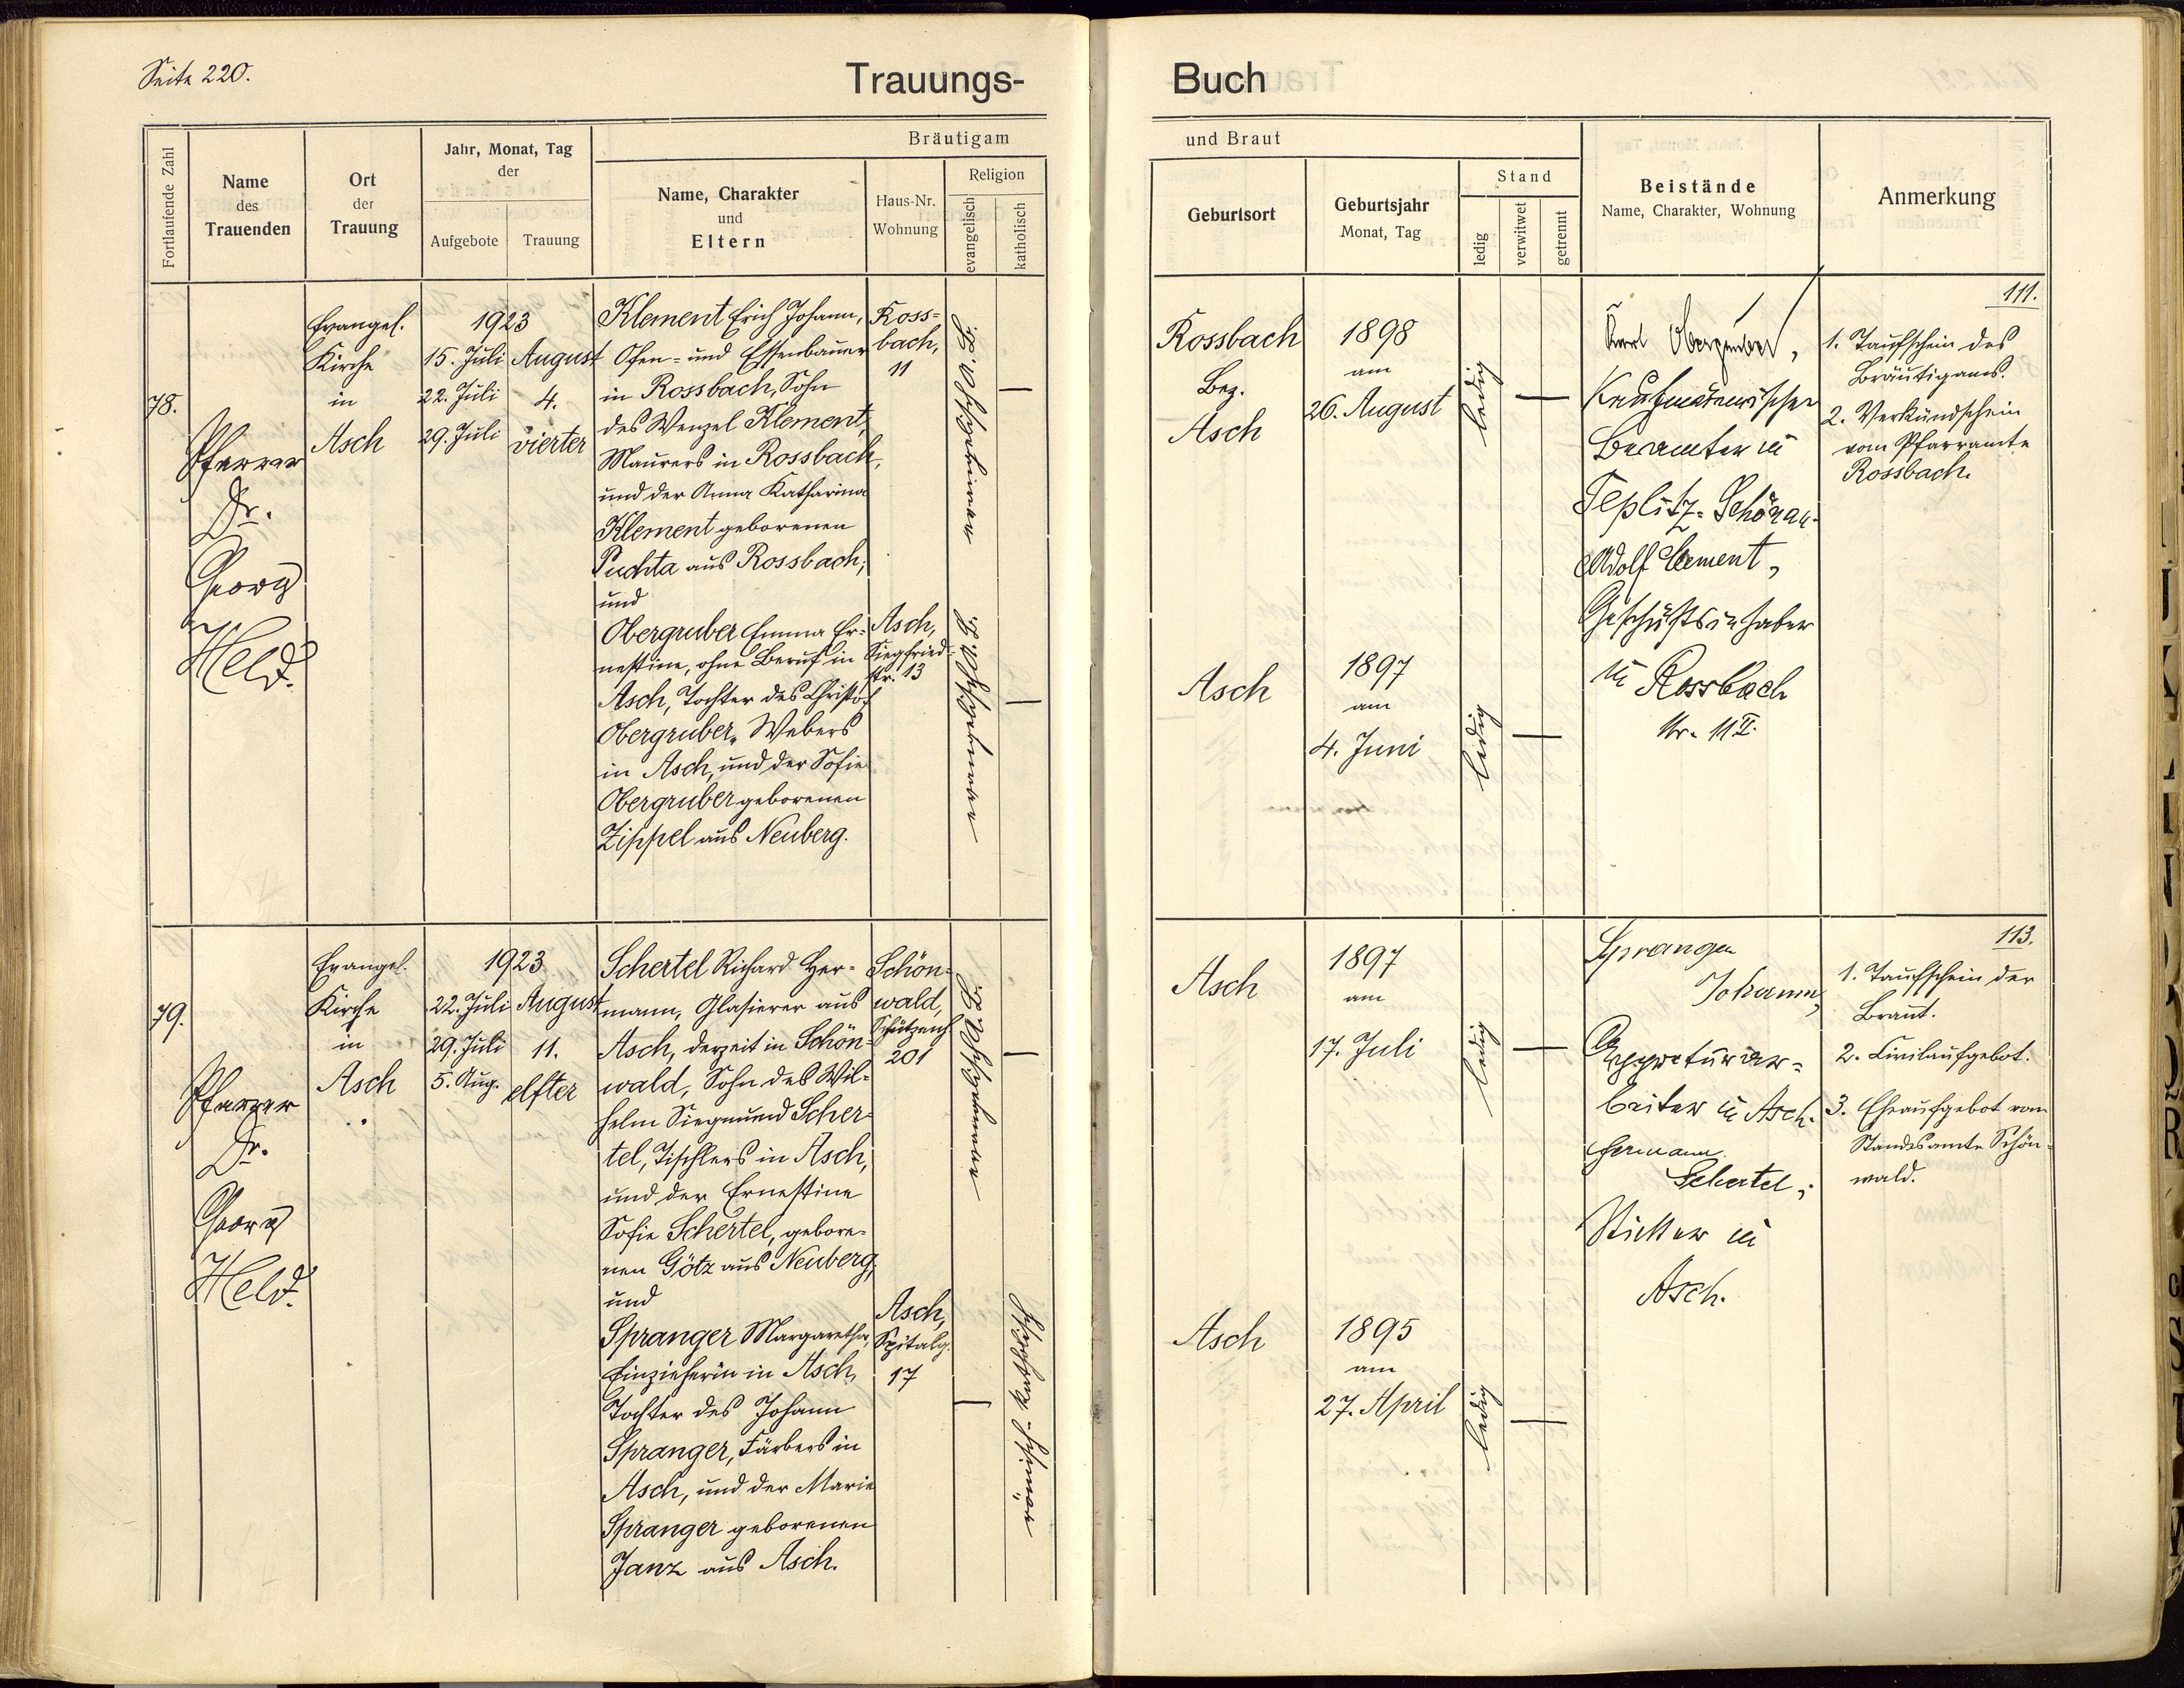 Seite 220.
Trauungs-
Fortlaufende Zahl
Name
des
Trauenden
Ort
der
Trauung
Jahr, Monat, Tag
der
Aufgebote
Trauung
Bräutigam
Name, Charakter
und
Eltern
Haus-Nr.
Wohnung
Religion
evangelisch
katholisch
78.
Pfarrer
Dr.
Georg
Held.
Evangel.
Kirche
in
Asch
1923
15. Juli
22. Juli
29. Juli
August
4.
vierter
Klement Erich Johann,
Ofen- und Essenbauer
in Rossbach, Sohn
des Wenzel Klement,
Maurers in Rossbach,
und der Anna Katharina
Klement geborenen
Puchta aus Rossbach;
und
Obergruber Emma Er-
nestine, ohne Beruf in
Asch, Tochter des Christof
Obergruber, Webers
in Asch, und der Sofie
Obergruber geborenen
Zippel aus Neuberg.
Ross-
bach,
11
Asch,
Siegfried-
str. 13
79.
Pfarrer
Dr.
Georg
Held.
Evangel.
Kirche
in
Asch
1923
22. Juli
29. Juli
5. Aug.
August
11.
elfter
Schertel Richard Her-
mann, Glasierer aus
Asch, derzeit in Schön-
wald, Sohn des Wil-
helm Siegmund Scher-
tel, Tischlers in Asch,
und der Ernestine
Sofie Schertel, gebore-
nen Götz aus Neuberg;
und
Spranger Margaretha,
Einzieherin in Asch,
Tochter des Johann
Spranger, Färbers in
Asch, und der Marie
Spranger geborenen
Janz aus Asch.
Schön-
wald,
201
Asch,
Spitalg.
17
römisch-katholisch
Buch
und Braut
Geburtsort
Geburtsjahr
Monat, Tag
Stand
ledig
verwitwet
getrennt
Beistände
Name, Charakter, Wohnung
Anmerkung
Rossbach
Bez.
Asch
1898
am
26. August
ledig
Asch
1897
am
4. Juni
ledig
Karl Obergruber,
Kaufmännischer
Beamter in
Teplitz-Schönau.
Adolf Klement,
Geschäftsinhaber
in Rossbach
Nr. 11 II.
111.
1. Taufschein des
Bräutigams.
2. Verkündschein
vom Pfarramte
Rossbach.
Asch
1897
am
17. Juli
ledig
Asch
1895
am
27. April
ledig
Spranger
Johann,
Appreturar-
beiter in Asch.
Hermann
Schertel,
Sticker in
Asch.
113.
1. Taufschein der
Braut.
2. Civilaufgebot.
3. Eheaufgebot vom
Standesamte Schön-
wald.